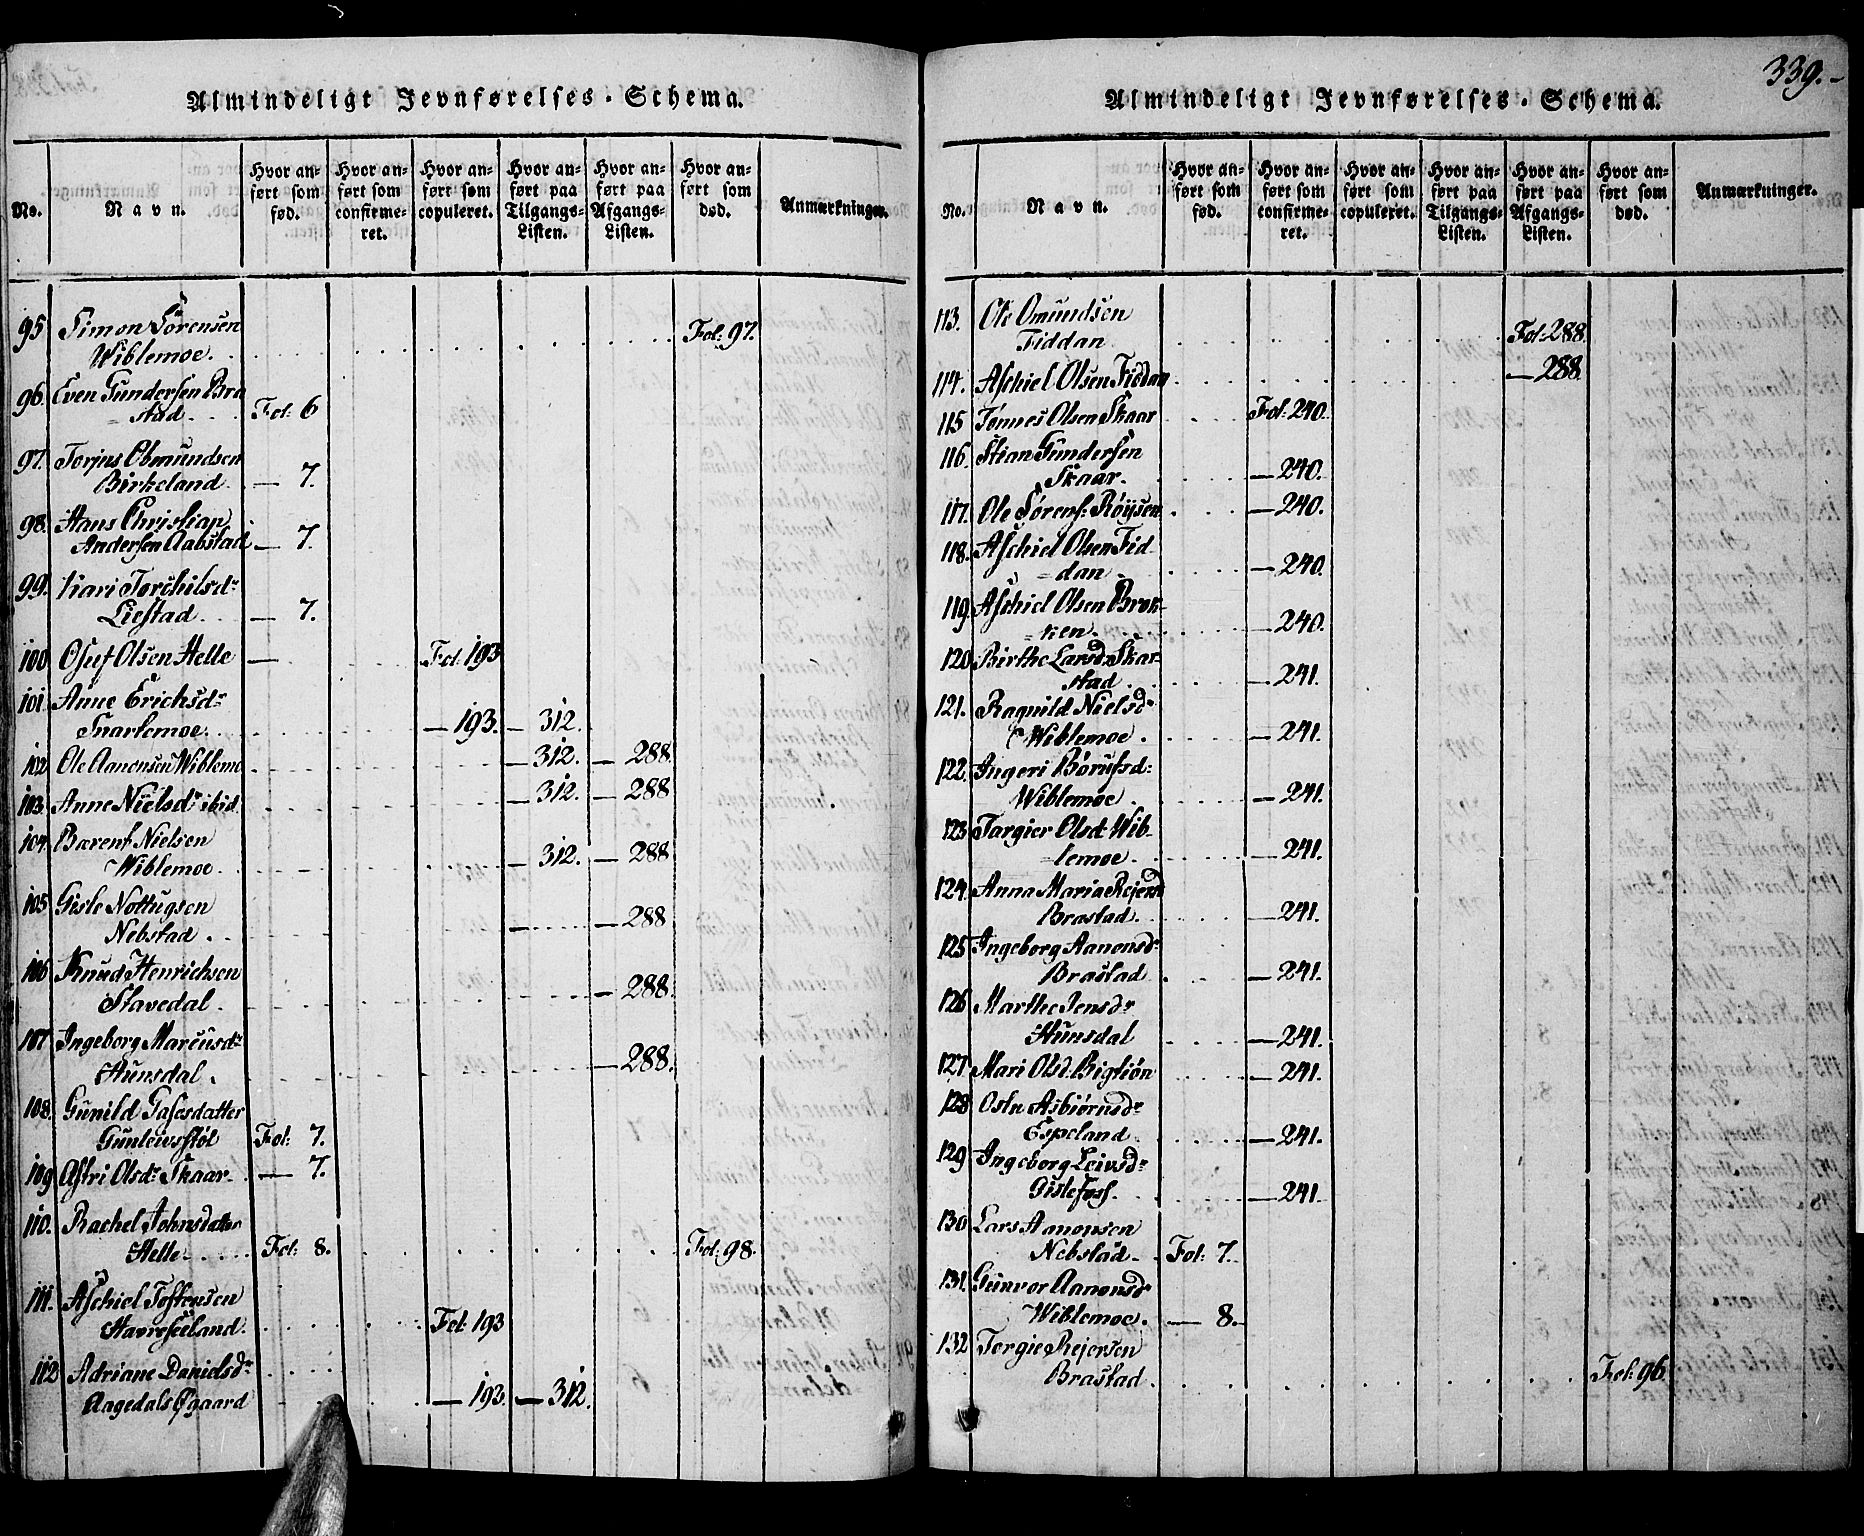 Almindeligt Jevnførelses-Schema.
No. Navn. Hvor anført som fød. Hvor anført som confirmeret. Hvor anført som copuleret. Hvor anført paa Tilgangs-Listen. Hvor anført paa Afgangs-Listen. Hvor anført som død. Anmærkninger.
95 Simon Sørensen
Wiblemoe. Fol: 97.
96. Even Gundersen Bra
=stad Fol: 6
97. Torjus Obmundsen
Birkeland. — 7.
98. Hans Christian
Andersen Aabstad — 7.
99. Kari Torchilsdr
Liestad. — 7.
100 Osuf Olsen Helle — Fol: 193
101. Anne Erichsdr
Snartemoe. — 193. — 312.
102 Ole Aanonsen Wiblemo — 312. — 288.
103. Anne Nielsdr ibid. — 312. — 288
104. Bærent Nielsen
Wiblemoe. — 312. — 288
105 Gisle Nottugsen
Nebstad. — 288
106 Knud Henrichsen
Stavedal. — 288.
107 Ingeborg Marcusdr
Hunsdal. — 288.
108. Gunild Tasesdatter
Gunleivstøl Fol: 7.
109 Astri Olsdr Skaar — 7.
110. Rachel Johnsdatter
Helle. Fol: 8. Fol: 98.
111. Aschiel Tostensen
Havreseland. Fol: 193
112 Adriane Danielsdr
Aagedals Øgaard — 193. — 312.
339.
Almindeligt Jevnførelses-Schema.
No. Navn. Hvor anført som fød. Hvor anført som confirmeret. Hvor anført som copuleret. Hvor anført paa Tilgangs-Listen. Hvor anført paa Afgangs-Listen. Hvor anført som død. Anmærkninger.
113. Ole Omundsen
Fiddan Fol: 288.
114. Aschiel Olsen Fiddan — 288
115 Tønnes Olsen Skaar Fol: 240.
116. Stian Gundersen
Skaar. — 240.
117. Ole Sørens: Røysen — 240.
118. Aschiel Olsen Fid-
=dan — 240.
119. Aschiel Olsen Brøk-
=ken. — 240.
120 Birthe Larsdr Skar-
stad — 241.
121. Ragnild Nielsdr
Wiblemoe. — 241.
122. Ingeri Børufsd:
Wiblemoe. — 241.
123 Targier Olsdr Wib-
=lemoe. — 241.
124. Anna Maria Rejersd
Brastad. — 241.
125 Ingeborg Aanonsdr
Brastad — 241.
126 Marthe Jensdr
Hunsdal — 241.
127. Mari Olsd. Bigtiøn — 241.
128 Osta Asbiørnsdr
Espeland. — 241.
129 Ingeborg Leivsdr
Gislefoss. — 241.
130 Lars Aanonsen
Nebstad Fol: 7.
131. Gunvor Aanonsdr
Wiblemoe. — 8.
132 Torgie Rejersen
Brastad Fol: 96.